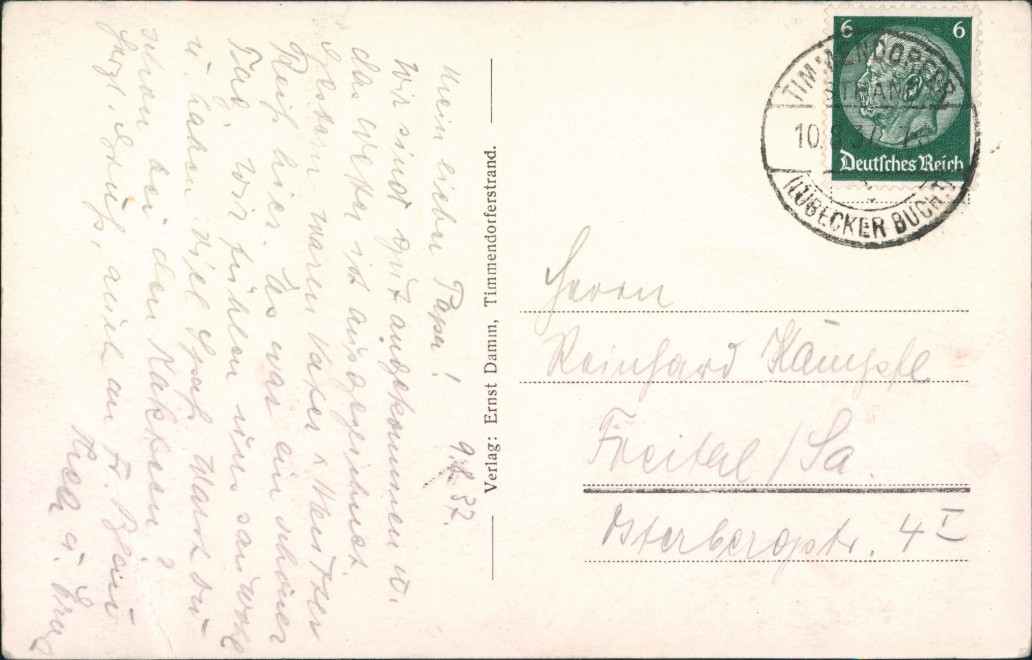 Mein lieber Papa! 9.8.37.
Wir sind gut angekommen u.
das Wetter ist ausgezeichnet.
Gestern waren Vater u.
hier. Es war ein schöner
Tag. Wir fühlen uns sau wohl
u. haben viel Spaß. Warst du
schon bei den Kakteen?
Herzl. Grüße, auch an Fr.
Verlag: Ernst Damm, Timmendorferstrand.
6 6
Deutsches Reich
TIMMENDORFER
STRAND
10.8.37.
(LÜBECKER BUCHT)
Herrn
Reinhard Kämpfe
Freital/Sa.
Osterbergstr. 4 I